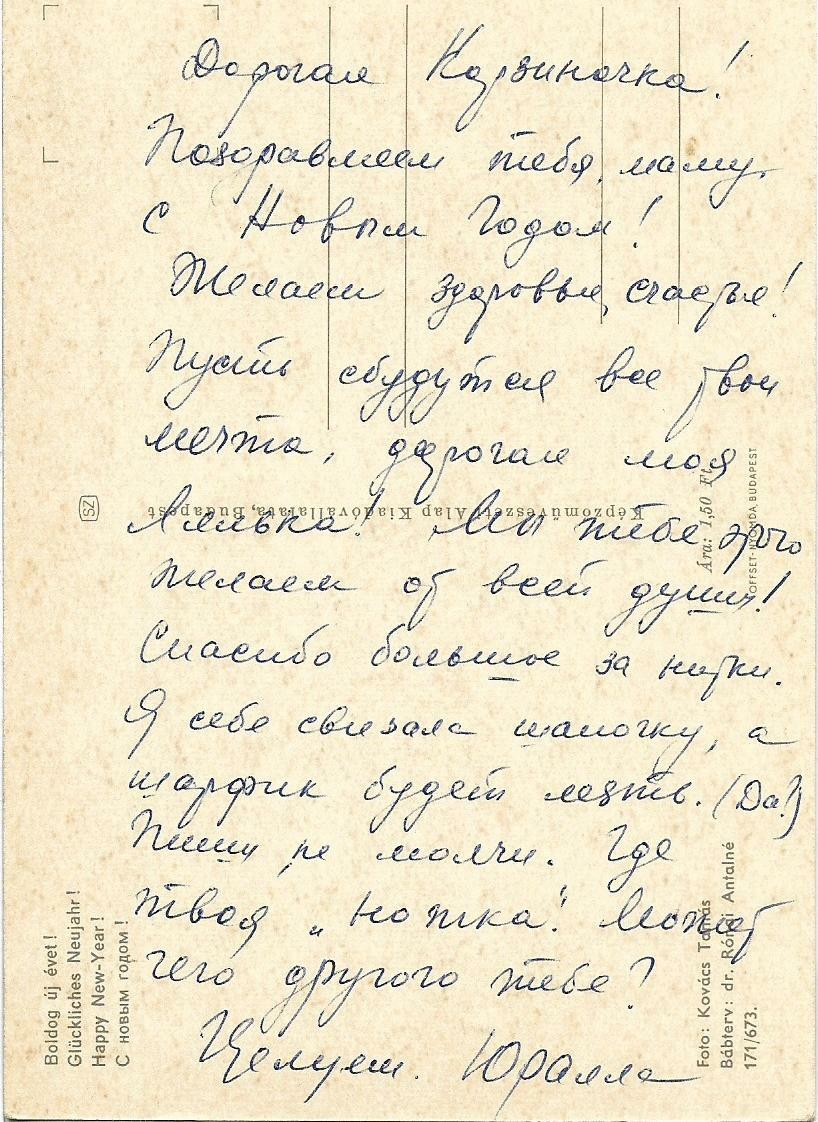 Дорогая Корзиночка!
Поздравляем тебя, маму
с Новым Годом!
Желаем здоровья, счастья!
Пусть сбудутся все твои
мечта, дорогая моя
Лялька! Мы тебе этого
желаем от всей души!
Спасибо большое за нитки.
Я себе связала шапочку, а
шарфик будет мять. (Да?)
Пиши, не молчи. Где
твоя „ножка"? Может
чего другого тебе?
Целуем. ЮРалла
Képzőművészeti Alap Kiadóvállalata, Budapest
SZ
Ára: 1,50 Ft
OFFSET-NYOMDA BUDAPEST
Boldog új évet!
Glückliches Neujahr!
Happy New-Year!
С новым годом!
Foto: Kovács Tamás
Bábterv: dr. Rónai Antalné
171/673.